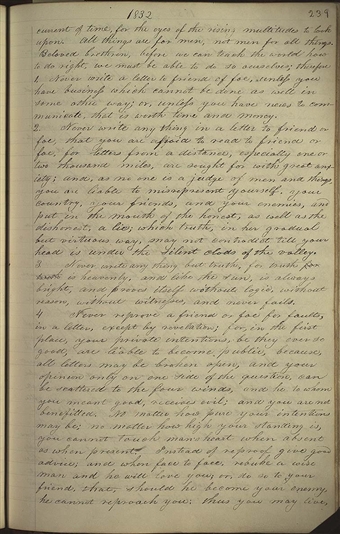 1832 239
current of time, for the eyes of the rising multitudes to look
upon. All things are for men, not men for all things.
Beloved brethren, before we can teach the world how
to do right, we must be able to do so ourselves; therefore
1. Never write a letter to friend or foe, unless you
have business which cannot be done as well in
some other way; or, unless you have news to com-
municate, that is worth time and money.
2. Never write any thing in a letter to friend or
foe, that you are afraid to read to friend or
foe, for letters from a distance, especially one or
two thousand miles, are sought for with great anx-
iety; and, as no one is a judge of men and things
you are liable to misrepresent yourself, your
country, your friends, and your enemies, and
put in the mouth of the honest, as well as the
dishonest, a lie, which truth, in her gradual
but virtuous way, may not contradict till your
head is under the silent clods of the valley.
3 Never write any thing but truth, for truth
is heavenly, and like the sun, is always
bright, and proves itself without logic, without
reason, without witnesses, and never fails.
4 Never reprove a friend or foe for faults,
in a letter, except by revelation; for, in the first
place, your private intentions, be they ever so
good, are liable to become public, because,
all letters may be broken open, and your
opinion only on one side of the question, can
be scattered to the four winds, and he to whom
you meant good, receives evil; and you are not
benefitted. No matter how pure your intentions
may be; no matter how high your standing is,
you cannot touch man's heart when absent
as when present. Instead of reproof, give good
advice; and when face to face, rebuke a wise
man and he will love you; or, do so to your
friend, that, should he become your enemy,
he cannot reproach you: thus you may live,